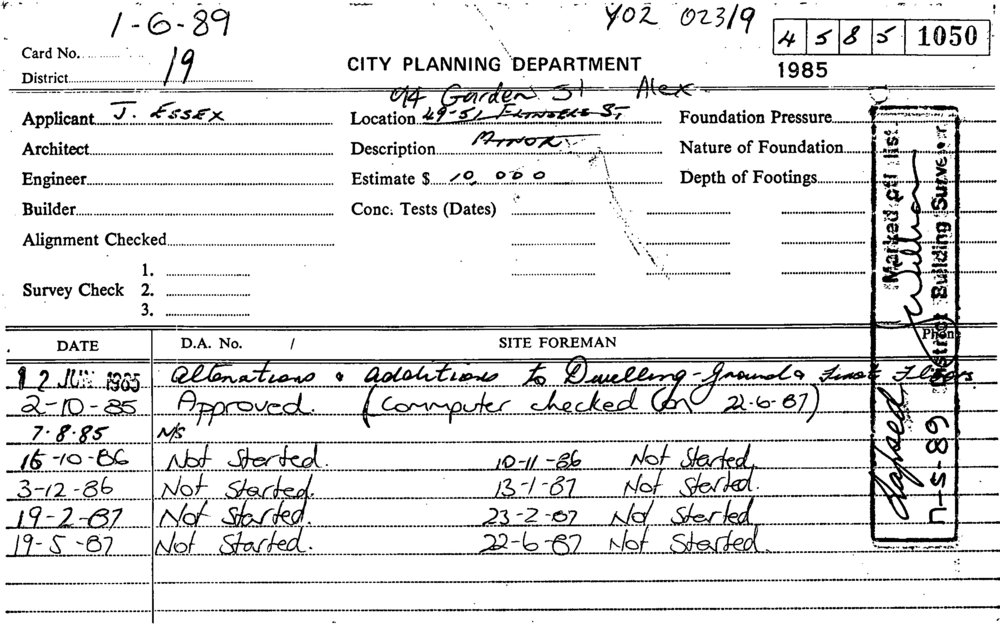 1-6-89
Y02 02319
4 5 8 5 1050
1985
Card No.
District 19
CITY PLANNING DEPARTMENT
94 Garden St Alex
Applicant J. ESSEX
Location 49-51, FLINDERS ST,
Foundation Pressure
Architect
Description MINOR
Nature of Foundation
Engineer
Estimate $ 10,000
Depth of Footings
Builder
Conc. Tests (Dates)
Alignment Checked
Survey Check
1.
2.
3.
Marked off list
District Building Surveyor
Lapsed
11-5-89
Phone
DATE D.A. No. / SITE FOREMAN
12 JUN 1985 Alterations & additions to Dwelling-Ground & First Floors
2-10-85 Approved. (Computer checked on 22-6-87)
7.8.85 N/S
16-10-86 Not Started. 10-11-86 Not Started.
3-12-86 Not Started. 13-1-87 Not Started.
19-2-87 Not Started. 23-2-87 Not Started.
19-5-87 Not Started. 22-6-87 Not Started.